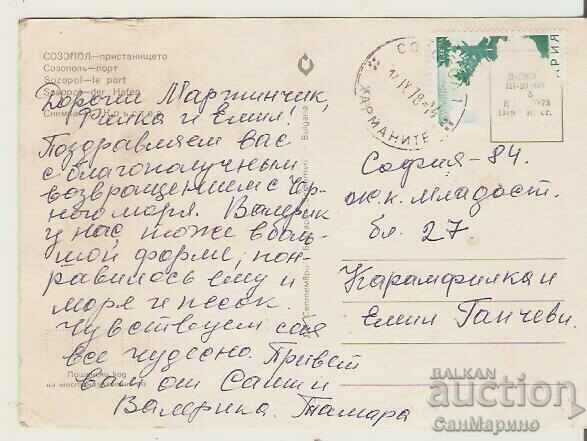 СОЗОПОЛ—пристанището
Созополь—порт
Sozopol—le port
Sozopol—der Hafen
Снимка
Дорогие Маргинчик,
Финка и Емил!
Поздравляем вас
с благополучным
возвращением с Чер-
ного моря. Валерик
у нас тоже в боль-
шой форме, пон-
равилось ему и
море и песок.
Чувствуем себя
все чудесно. Привет
Вам от Саши и
Валерика. Тамара
Пощенски код
Септември
Bulgaria
СОЗ
17.IV.78-14
ХАРМАНИТЕ
РИЯ
София-84.
ж.к. Младост.
бл. 27
Карамфилка и
Емил Ганчеви.
BALKAN
auction
СанМарино